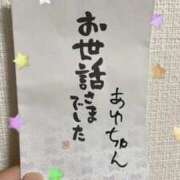 お世話さま
でした
あゆちゃん